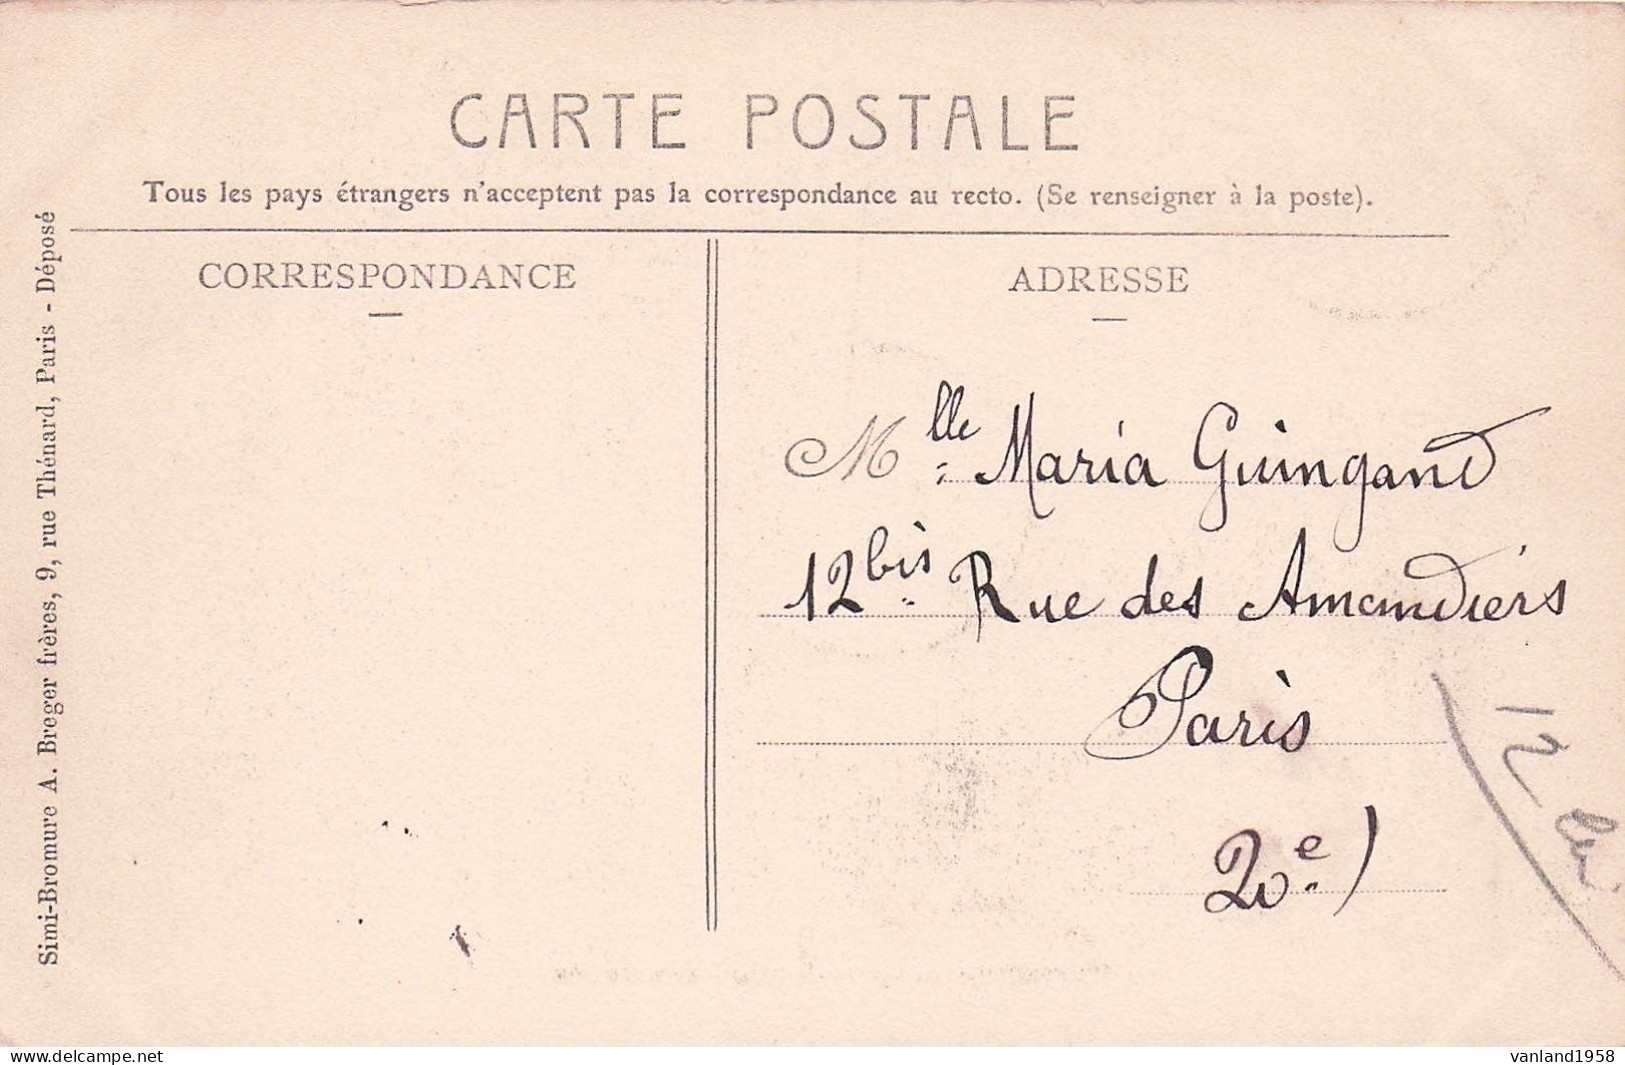 CARTE POSTALE
Tous les pays étrangers n'acceptent pas la correspondance au recto. (Se renseigner à la poste).
Simi-Bromure A. Breger frères, 9, rue Thénard, Paris - Déposé
CORRESPONDANCE
ADRESSE
Mlle Maria Guingand
12 bis Rue des Amandiers
Paris
20e)
12
www.delcampe.net
vanland1958